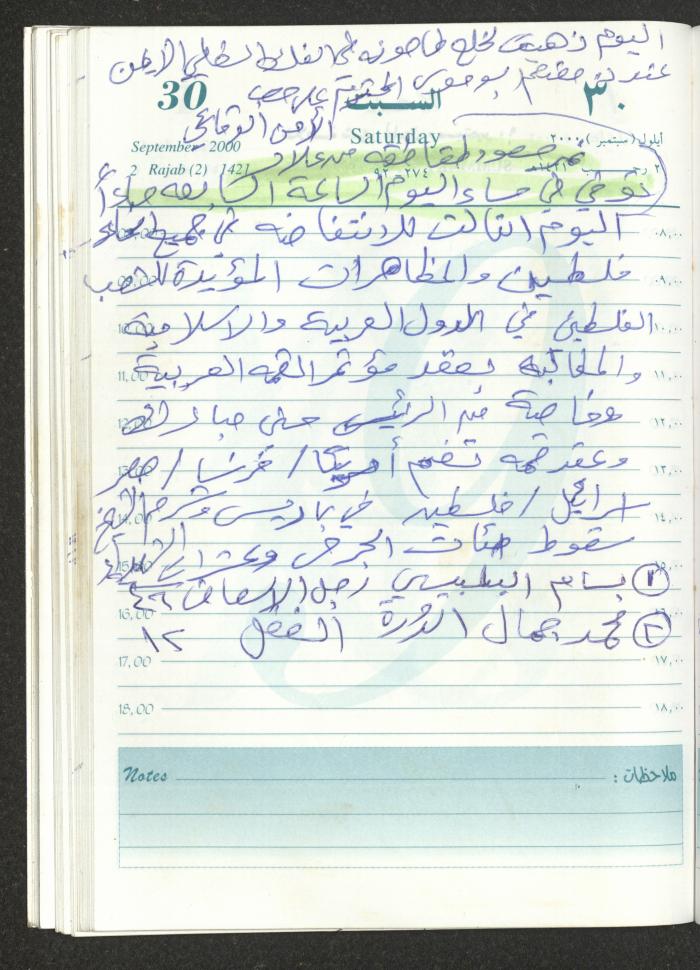 اليوم ذهبت لخلع طاحونه في الفك السفلي الأيمن
عند بو موسى
30 السبت ٣٠
الأمن الوقائي
September 2000 Saturday أيلول (سبتمبر) ٢٠٠٠
2 Rajab (2) 1421 ٢ رجب ١٤٢١ ٩٢-٢٧٤
توفي في مساء اليوم الساعة السابعه مساءاً
08,00 اليوم الثالث للانتفاضه في جميع أنحاء ٠٨,٠٠
09,00 فلسطين والمظاهرات المؤيدة للشعب ٠٩,٠٠
10,00 الفلسطيني في الدول العربية والاسلامية ١٠,٠٠
11,00 والمطالبه بعقد مؤتمر القمه العربية ١١,٠٠
12,00 وخاصة من الرئيس حسني مبارك ١٢,٠٠
13,00 وعقد قمه تضم أمريكا / فرنسا / مصر ١٣,٠٠
14,00 اسرائيل / فلسطين في باريس وشرم الشيخ ١٤,٠٠
15,00 سقوط مئات الجرحى وعشرات الشهداء ١٥,٠٠
① بسام البلبيسي رجل الاسعاف ٤٦
16,00 ② محمد جمال الدرة الطفل ١٢ ١٦,٠٠
17,00 ١٧,٠٠
18,00 ١٨,٠٠
Notes ملاحظات :